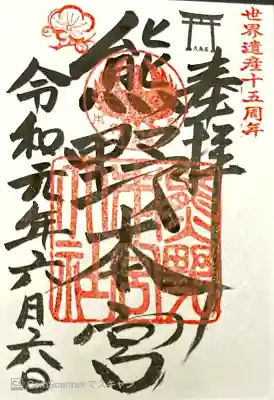 世界遺産十五周年
奉拝
大鳥居
熊野本宮
令和元年六月六日
CamScannerでスキャン